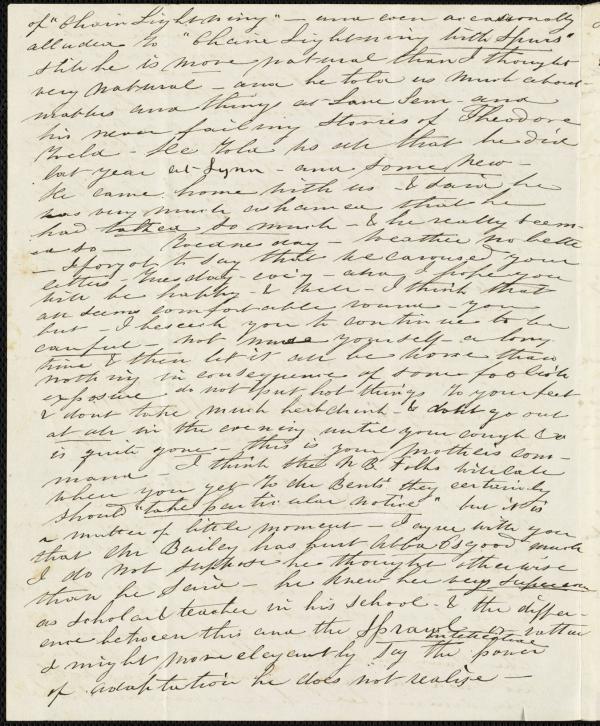 of "Chain Lightning" - and even occasionally
alluded to "Chain Lightning with Spurs"
still he is more natural than I thought
very natural - and he told us much about
and things at Lane Sem - and
his never failing stories of Theodore
Weld - He told us all that he did
last year at Lynn - and some new -
He came home with us - & said he
was very much ashamed that he
had talked so much - & he really seem-
ed so - Wednesday - Weather no better
- I forgot to say that we your
letter Tuesday - evg - and I hope you
will be happy - & well - I think that
all seems comfortable round you
but - I beseech you to continue to be
careful - not yourself a long
time & then let it all be worse than
nothing in consequence of some foolish
exposure - do not put hot things to your feet
& dont take much herb drink - & dont go out
at all in the evening until your cough &c
is quite gone - this is your mothers com-
mand - I think the N B Folks will call
when you get to the Bents they certainly
should "take particular notice" but it is
a matter of little moment - I agree with you
that Mr Bailey has hurt Abba Osgood much
I do not suppose he thought otherwise
than he said - he knew her very superior
as scholar & teacher in his school - & the differ-
ence between this and the sprawl - or rather
I might more elegantly say the intellectual power
of adaptation he does not realise -